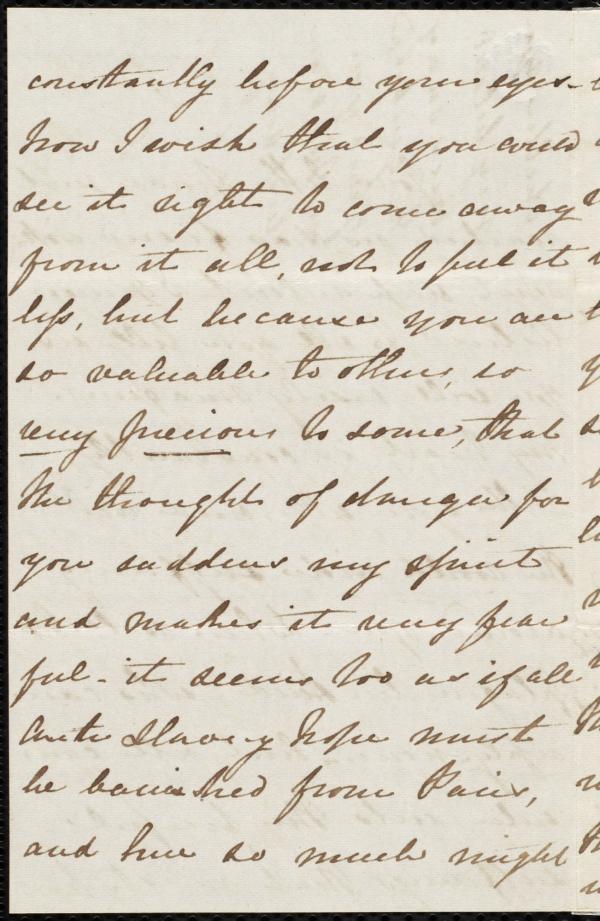 constantly before your eyes -
how I wish that you could
see it right to come away
from it all, not to feel it
less, but because you are
so valuable to others, so
very precious to some, that
the thought of danger for
you saddens my spirit
and makes it very fear
ful - it seems too as if all
Anti Slavery hope must
be banished from Paris,
and here so much might